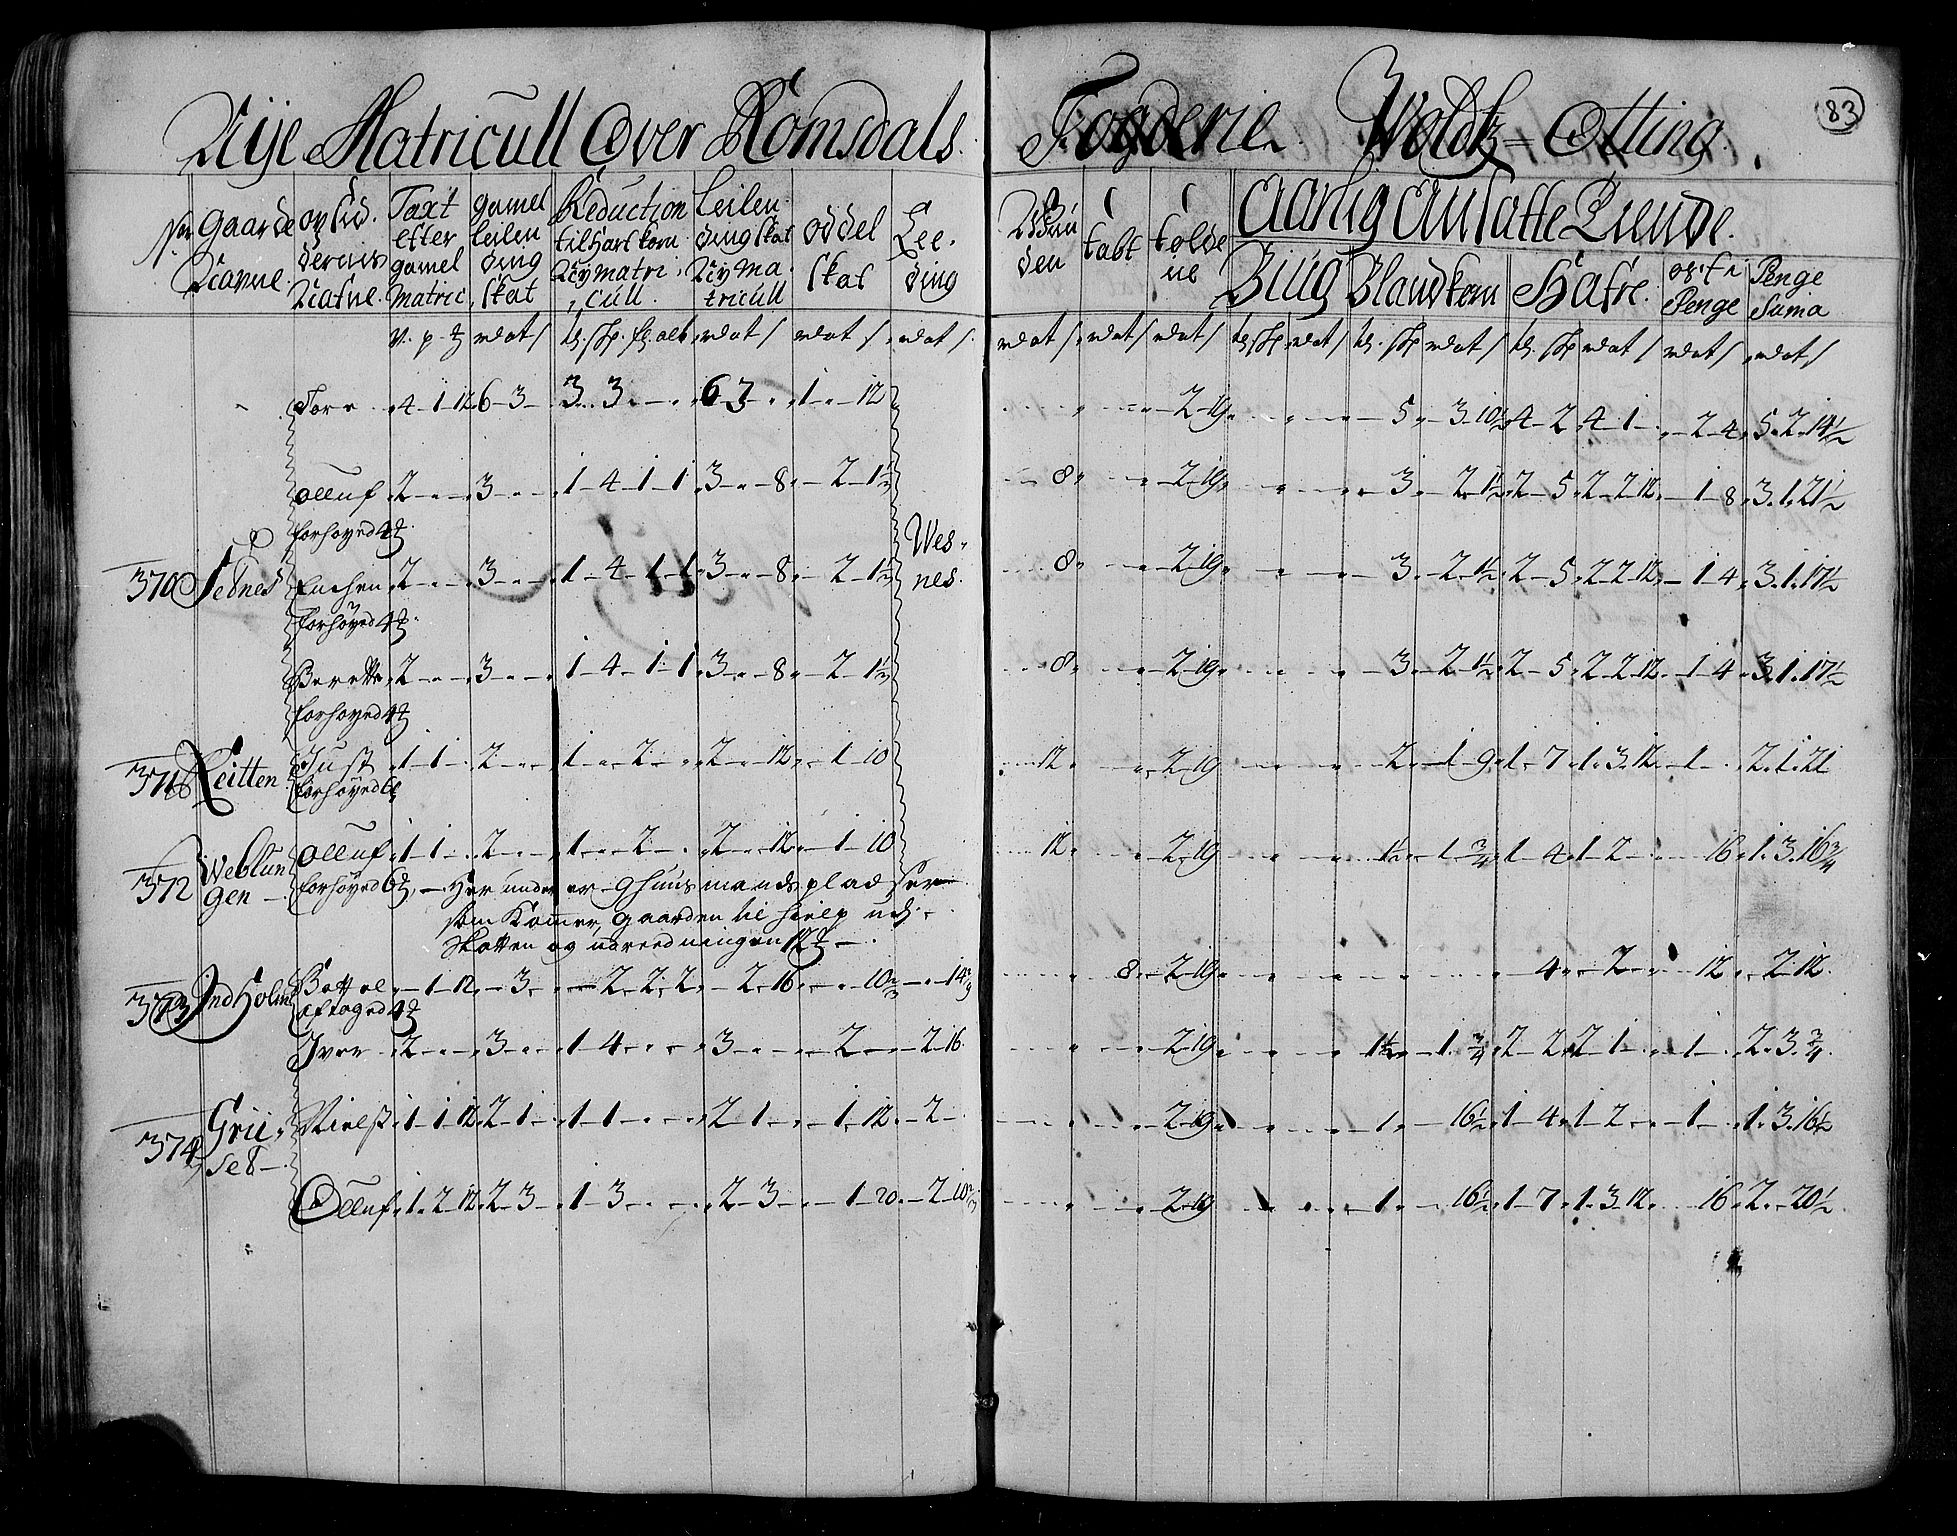 Nye Matricull Over Romsdals Fogderie Woldtz = Otting. 83
No. Gaarde Navne.
opsid. dernis Nafne.
Taxt efter gamel Matric.
gamel leilen ding skat
Reduction til hart korn Ny matri, cull.
Leilen ding skat Ny ma. tricull
oddel skat
Lee. ding
Wun den
tabt
tolde ne
Aarlig Ansatte Tiende.
Biug Blandkorn Hafre.
oste Penge
Penge Suma
Tore 4-1-12 6-3 3-3 6-3 1-12 2-19 5 3-10½ 4-2 4-1 2-4 5-2-14½
olluf 2 3 1-4-1-1 3-8 2-1½ 8 2-19 3 2-1½ 2-5 2-2-12 1-8 3-1-21½
forhøyed
370 Setnes Enchen 2 3 1-4-1-1 3-8 2-1½ Wes nes. 8 2-19 3 2-1½ 2-5 2-2-12 1-4 3-1-17½
forhøyed
Berette 2 3 1-4-1-1 3-8 2-1½ 8 2-19 3 2-1½ 2-5 2-2-12 1-4 3-1-17½
forhøyed
371 Leitten Just 1-1 2 1-2 2-12 1-10 12 2-19 2 1-9 1-7 1-3-12 1 2-1-21
forhøyed
372 Weblun gen olluf 1-1 2 1-2 2-12 1-10 12 2-19 1½ 1-¾ 1-4 1-2 16 1-3-16¾
forhøyed Her under er 9 huusmands pladser
som Komer gaarden til hielp udi
skatten og udreedningen
373 Indholm Bottol 1-12 3 2-2-2 2-16 10⅔ 14 8 2-19 4 2 12 2-12
aftaged
Iver 2 3 1-4 3 2 2-16 2-19 1½ 1-¾ 2-2 2-1 1 2-3-¾
374 Grii set Nielß 1-1-12 2-1 1-1 2-1 1-12 2 2-19 1 16½ 1-4 1-2 1 1-3-16½
Olluf 1-2-12 2-3 1-3 2-3 1-20 2-10⅔ 2-19 1 16½ 1-7 1-3-12 16 2-20½